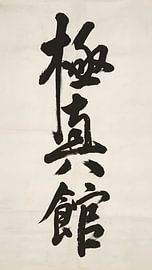 極真館